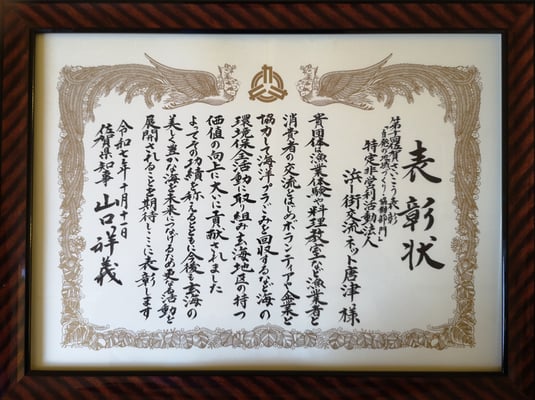 表彰状
第十回佐賀さいこう表彰
「自然の宝庫づくり・耕耕部門」
特定非営利活動法人
浜‐街交流ネット唐津 様
貴団体は漁業体験や料理教室など漁業者と
消費者の交流をはじめボランティアや企業と
協力して海洋プラごみを回収するなど海の
環境保全活動に取り組み玄海地区の持つ
価値の向上に大いに貢献されました
よってその功績を称えるとともに今後も玄海の
美しく豊かな海を未来につなげるため更に活動を
展開されることを期待しここに表彰します
令和七年十月十一日
佐賀県知事 山口祥義